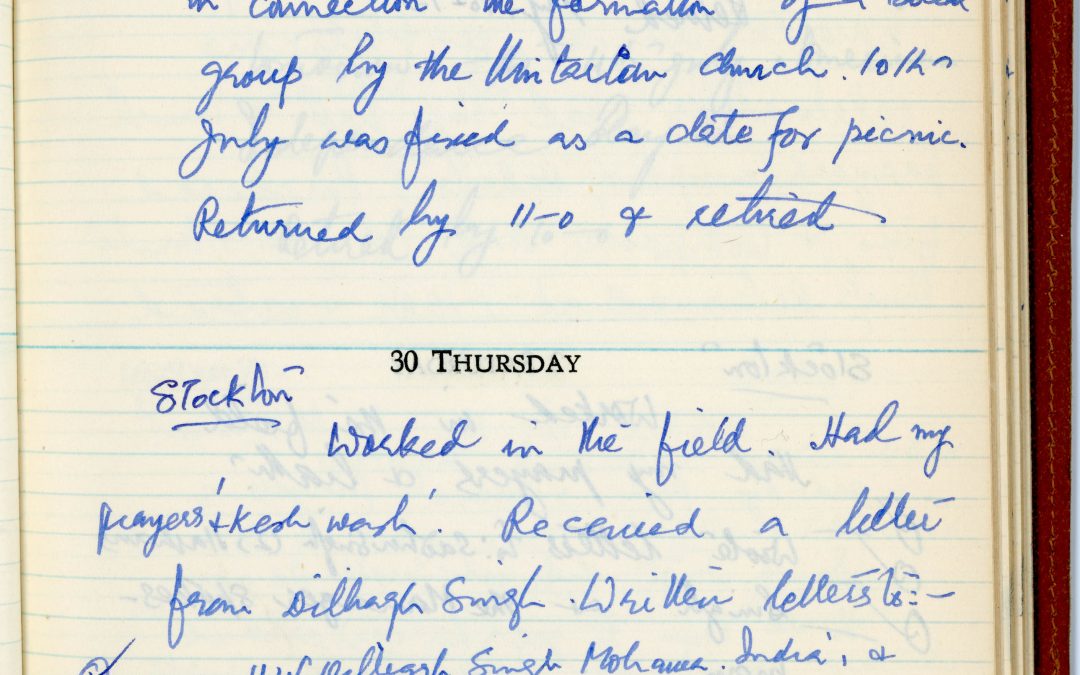 in connection the formation of a
group by the Unitarian Church. 10th
July was fixed as a date for picnic.
Returned by 11-0 & retired
30 THURSDAY
Stockton
Worked in the field. Had my
prayers & 'Kesh wash'. Received a letter
from Dilbagh Singh. Written letters to:-
Dilbagh Singh India, &